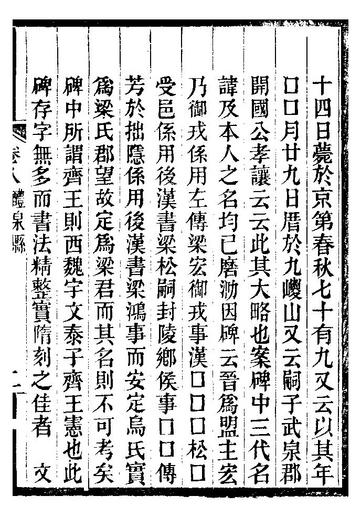 十四日薨於京第春秋七十有九又云以其年
口口月廿九日厝於九嵕山又云嗣子武泉郡
開國公孝讓云云此其大略也案碑中三代名
諱及本人之名均已磨泐因碑云晉爲盟主宏
乃御戎係用左傳梁宏御戎事漢口口口松口
受邑係用後漢書梁松嗣封陵鄉侯事口口傳
芳於拙隱係用後漢書梁鴻事而安定烏氏實
爲梁氏郡望故定爲梁君而其名則不可考矣
碑中所謂齊王則西魏宇文泰子齊王憲也此
碑存字無多而書法精整實隋刻之佳者　文
卷八　醴泉縣　二